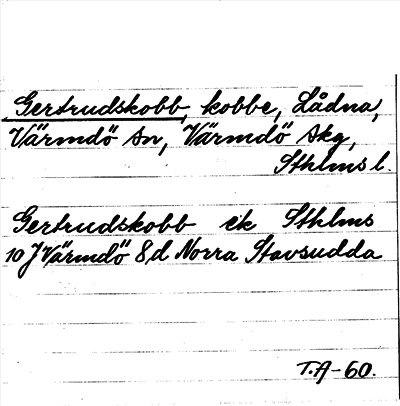 Gertrudskobb, kobbe, Lådna,
Värmdö sn, Värmdö skg,
Sthlms l.
Gertrudskobb ek Sthlms
10 J Värmdö 8,d Norra Stavsudda
T.A-60.